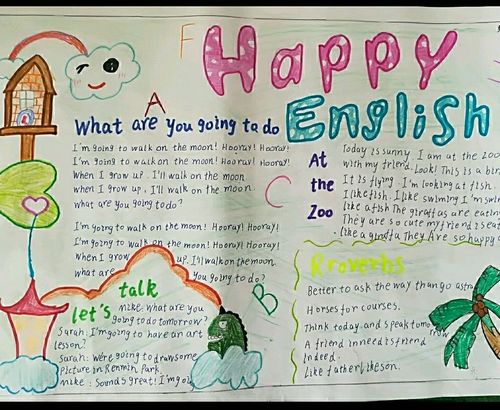 F
Happy
English
A
What are you going to do
I'm going to walk on the moon! Hooray! Hooray!
I'm going to walk on the moon! Hooray! Hooray!
When I grow up. I'll walk on the moon
when I grow up. I'll walk on the moon.
what are you going to do?
I'm going to walk on the moon! Hooray! Hooray!
I'm going to walk on the moon! Hooray! Hooray!
When I grow up. I'll walk on the moon.
what are you going to do?
C
At
the
Zoo
Today is sunny. I am at the zoo
with my friend. Look! This is a bir
It is flying. I'm looking at fish.
I like fish. I like swiming I'm swim
like a fish The giraffas are eatin
They are so cute my friend is eat
like a giraffa They Are so happy
B
let's talk
Mike: what are you
going to do tomorrow?
Sarah: I'm going to have an art
lesson?
Sarah: We're going to draw some
Picture in Renmin Park.
Mike: Sounds great! I'm goi
Rroverbs
Better to ask the way than go astra
Horses for courses.
Think today and speak tomorrow
A friend in need is friend
indeed.
Like father like son.